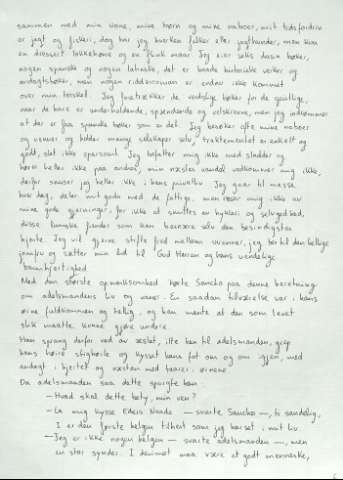 sammen med min kone, mine børn og mine naboer, mit tidsfordriv
er jagt og fiskeri, dog har jeg hverken falke eller jagthunder, men kun
en dresseret lokkehøne og en flink maar. Jeg eier seks dusin bøker,
nogen spanske og nogen latinske, det er baade historiske verker og
andagtsbøker, men nogen ridderroman er endnu ikke kommet
over min terskel. Jeg foretrækker de verdslige bøker for de geistlige,
naar de bare er underholdende, spændende og velskrevne, men jeg indrømmer
at der er faa spanske bøker som er det. Jeg besøker ofte mine naboer
og venner og holder mange selskaper selv, traktementet er enkelt og
godt, slet ikke sparsomt. Jeg befatter mig ikke med sladder og
hører heller ikke paa andres, min næstes vandel vedkommer mig ikke,
derfor snuser jeg heller ikke i hans privatliv. Jeg gaar til messe
hver dag, deler mit gods med de fattige, men roser mig ikke av
mine gode gjerninger, for ikke at smittes av hykleri og selvgodhed,
disse lumske fiender som kan besnære selv den besindigstes
hjerte. Jeg vil gjerne stifte fred mellem uvenner, jeg ber til den hellige
jomfru og sætter min lid til Gud Herren og hans uendelige
barmhjertighed.
Med den største opmerksomhed hørte Sancho paa denne beretning
om adelsmandens liv og vaner. En saadan tilværelse var i hans
øine fuldkommen og hellig, og han mente at den som levet
slik maatte kunne gjøre undere.
Han sprang derfor ned av æslet, ilte hen til adelsmanden, grep
hans høire stigbøile og kysset hans fot om og om igjen, med
andagt i hjertet og næsten med taarer i øinene.
Da adelsmanden saa dette spurgte han:
—Hvad skal dette bety, min ven?
—La mig kysse Eders Naade — svarte Sancho —, ti sandelig,
I er den første helgen tilhest som jeg har set i mit liv.
—Jeg er ikke nogen helgen — svarte adelsmanden —, men
en stor synder. I derimot maa være et godt menneske,